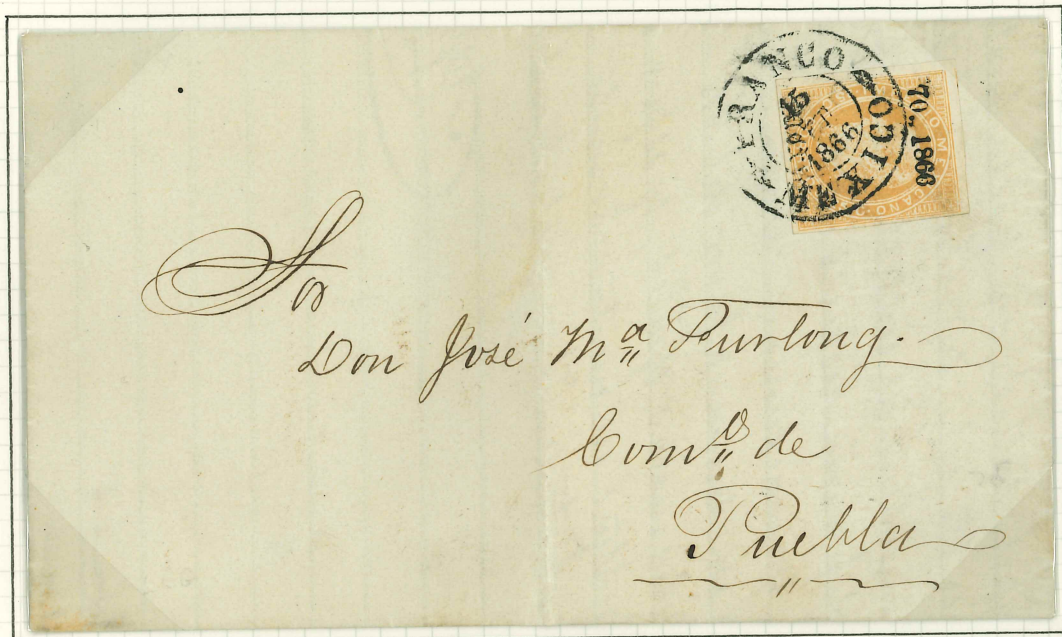 FRANCO MEXICO
1866
70, 1866
Sor
Don José Ma Furlong.
Como de
Puebla